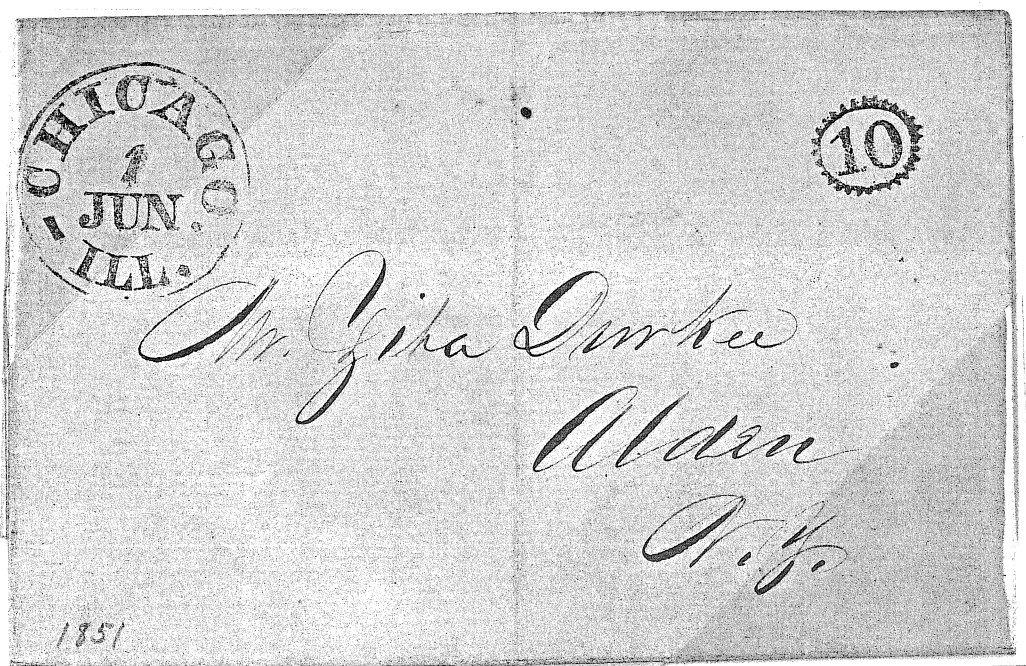 CHICAGO
1
JUN.
ILL.
10
Mr. Ziba Durkee
Alden
N.Y.
1851